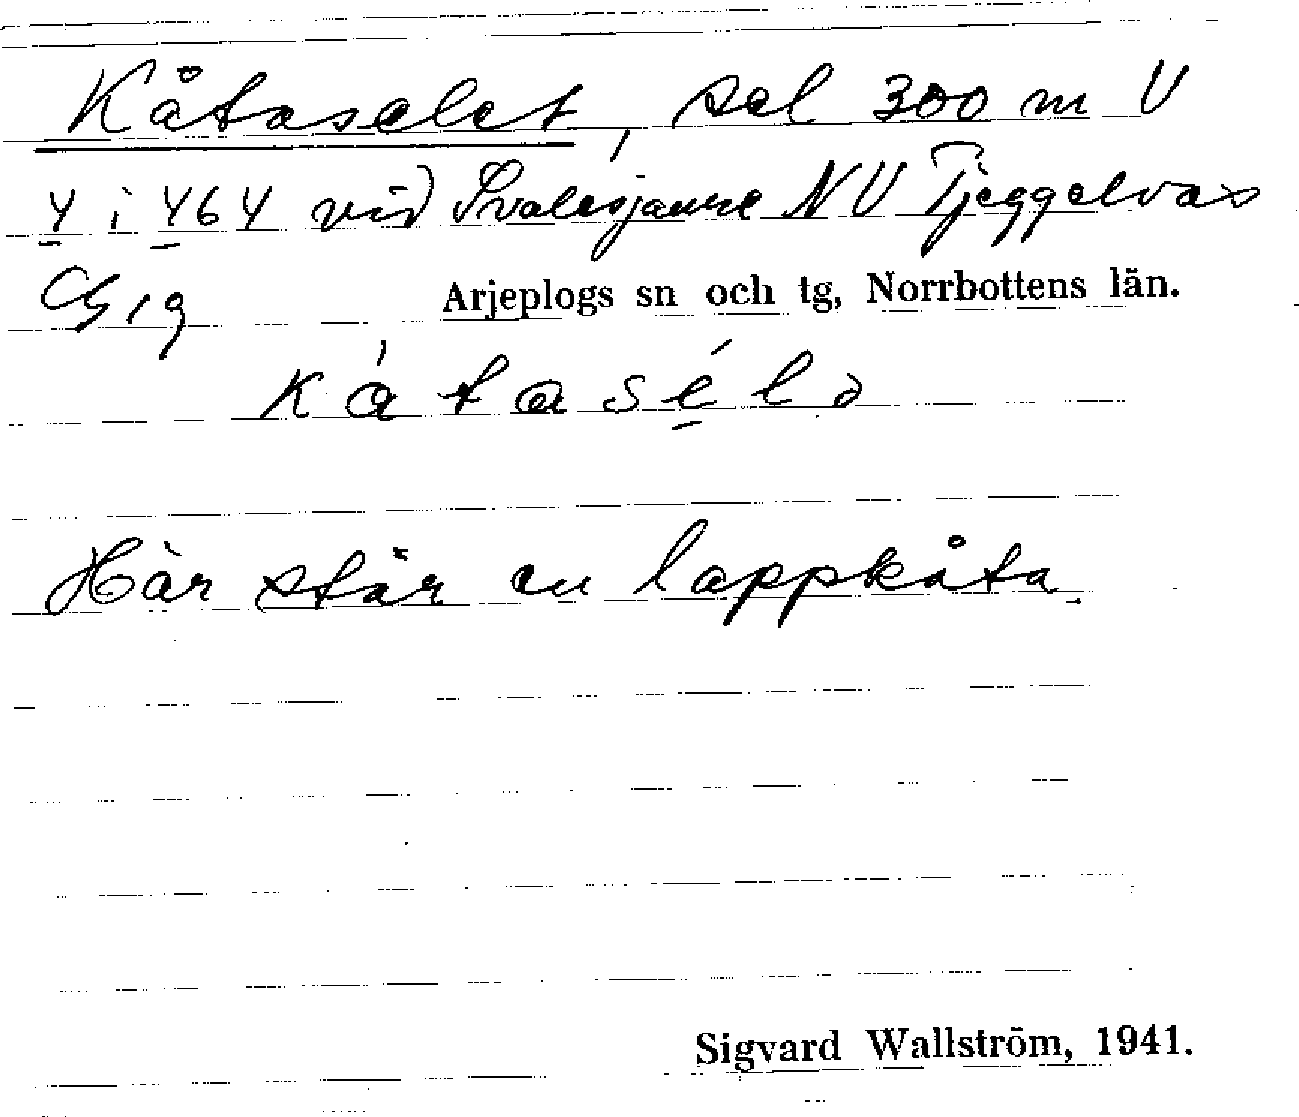 Kåtaselet, sel 300 m V
4 i 464 vid Svalesjaure NV Tjeggelvas
Arjeplogs sn och tg, Norrbottens län.
kátasélə
Här står en lappkåta.
Sigvard Wallström, 1941.